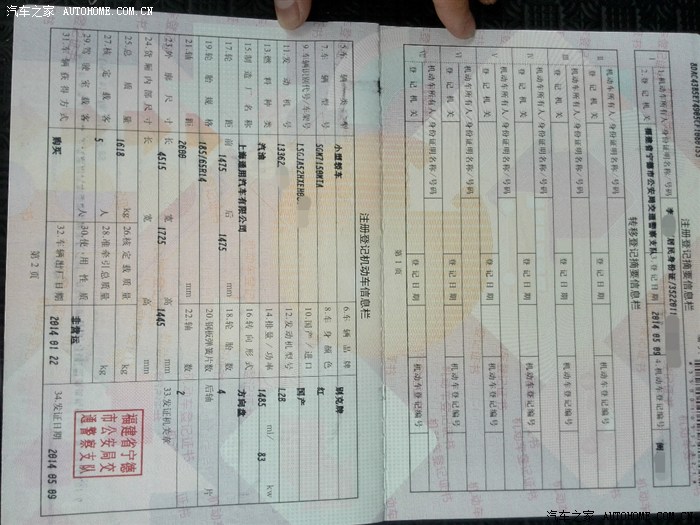 汽车之家 AUTOHOME.COM.CN
注册登记摘要信息栏
1.机动车所有人/身份证明名称/号码 李 /居民身份证/3522011
2.登记机关 福建省宁德市公安局交通警察支队 3.登记日期 2014 05 09 4.机动车登记编号 闽
转移登记摘要信息栏
机动车所有人/身份证明名称/号码
登记机关 登记日期 机动车登记编号
机动车所有人/身份证明名称/号码
登记机关 登记日期 机动车登记编号
机动车所有人/身份证明名称/号码
登记机关 登记日期 机动车登记编号
机动车所有人/身份证明名称/号码
登记机关 登记日期 机动车登记编号
机动车所有人/身份证明名称/号码
登记机关 登记日期 机动车登记编号
机动车所有人/身份证明名称/号码
登记机关 登记日期 机动车登记编号
第1页
注册登记机动车信息栏
5.车辆类型 小型轿车 6.车辆品牌 别克牌
7.车辆型号 SGM7150MTA 8.车身颜色 红
9.车辆识别代号/车架号 10.国产/进口 国产
11.发动机号 13362 12.发动机型号 L2B
13.燃料种类 汽油 14.排量/功率 1485 ml/ 83 kw
15.制造厂名称 上海通用汽车有限公司 16.转向形式 方向盘
17.轮距 前 1475 后 1475 mm 18.轮胎数 4
19.轮胎规格 185/65R14 20.钢板弹簧片数 后轴 片
21.轴距 2600 mm 22.轴数 2
23.外廓尺寸 长 4515 宽 1725 高 1445 mm 33.发证机关章
24.货厢内部尺寸 长 宽 高 mm
25.总质量 1618 kg 26.核定载质量 kg
27.核定载客 5 人 28.准牵引总质量 kg
29.驾驶室载客 人 30.使用性质 非营运
31.车辆获得方式 购买 32.车辆出厂日期 2014 01 22 34.发证日期 2014 05 09
福建省宁德
市公安局交
通警察支队
第2页
汽车之家 AUTOHOME.COM.CN